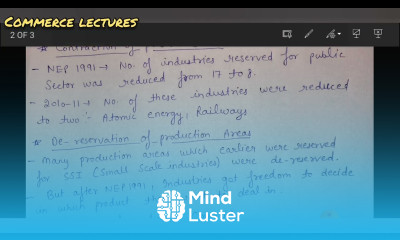 COMMERCE LECTURES
2 OF 3
* Contraction of
- NEP 1991 → No. of industries reserved for public
Sector was reduced from 17 to 8.
- 2010-11 → No. of these industries were reduced
to two: Atomic energy, Railways
De-reservation of production Areas
- Many production areas which earlier were reserved
for SSI (Small Scale industries) were de-reserved.
- But after NEP 1991, industries got freedom to decide
in which product to deal in.
Mind
Luster